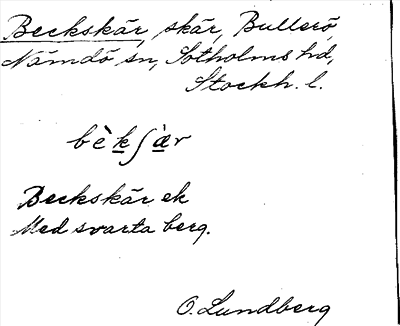 Beckskär, skär, Bullerö,
Nämdö sn, Sotholms hd,
Stockh. l.
bè̀kʃæ̀r
Beckskär ek
Med svarta berg.
O. Lundberg